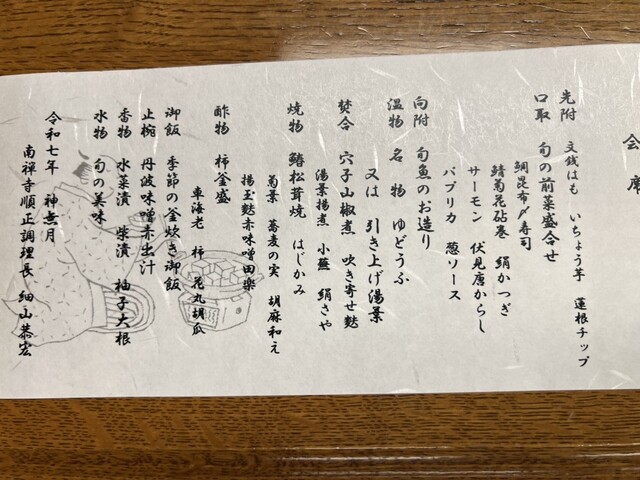 会席
先附 文銭はも いちょう芋 蓮根チップ
口取 旬の前菜盛合せ
鯛昆布〆寿司
鯖菊花砧巻 絹かつぎ
サーモン 伏見唐からし
パプリカ 葱ソース
向附 旬魚のお造り
温物 名物 ゆどうふ
又は 引き上げ湯葉
焚合 穴子山椒煮 吹き寄せ麩
湯葉揚煮 小蕪 絹さや
焼物 鰆松茸焼 はじかみ
揚玉麩赤味噌田楽
菊菜 蕎麦の実 胡麻和え
酢物 柿釜盛
車海老 柿 花丸胡瓜
御飯 季節の釜炊き御飯
止椀 丹波味噌赤出汁
香物 水菜漬 柴漬 柚子大根
水物 旬の美味
令和七年 神無月
南禅寺順正調理長 細山恭宏